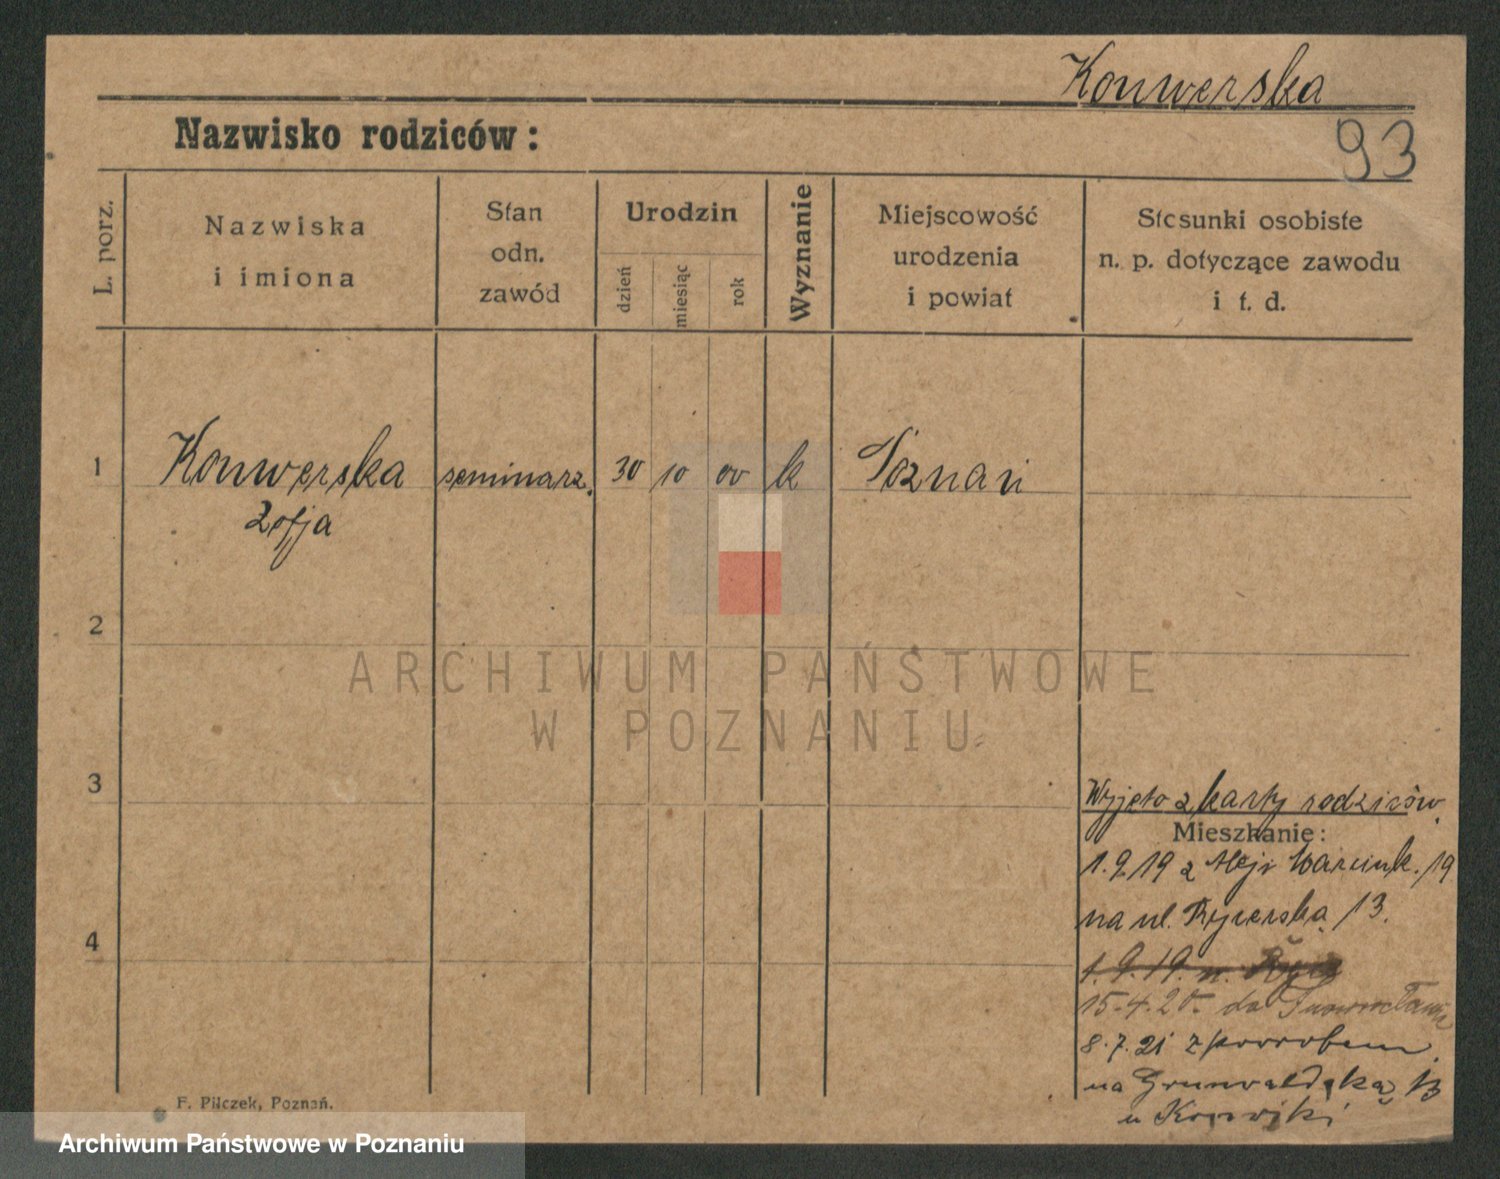 Konwerska
Nazwisko rodziców:
93
L. porz.
Nazwiska
i imiona
Stan
odn.
zawód
Urodzin
dzień
miesiąc
rok
Wyznanie
Miejscowość
urodzenia
i powiat
Stosunki osobiste
n. p. dotyczące zawodu
i t. d.
1
Konwerska seminarz. 30 10 00 k Poznań
Zofja
2
ARCHIWUM PAŃSTWOWE
W POZNANIU
3
Wyjęto z karty rodziców.
Mieszkanie:
1.9.19 z Alej Marcink. 19
na ul. Rycerska 13.
4
1.9.19. n.
15.4.20. do
8.7.21 z powrotem
na Grunwaldzką 13
u
F. Pilczek, Poznań.
Archiwum Państwowe w Poznaniu